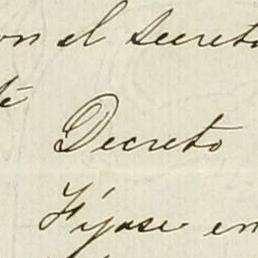 on el Secreto
te
Decreto
Fíjase en